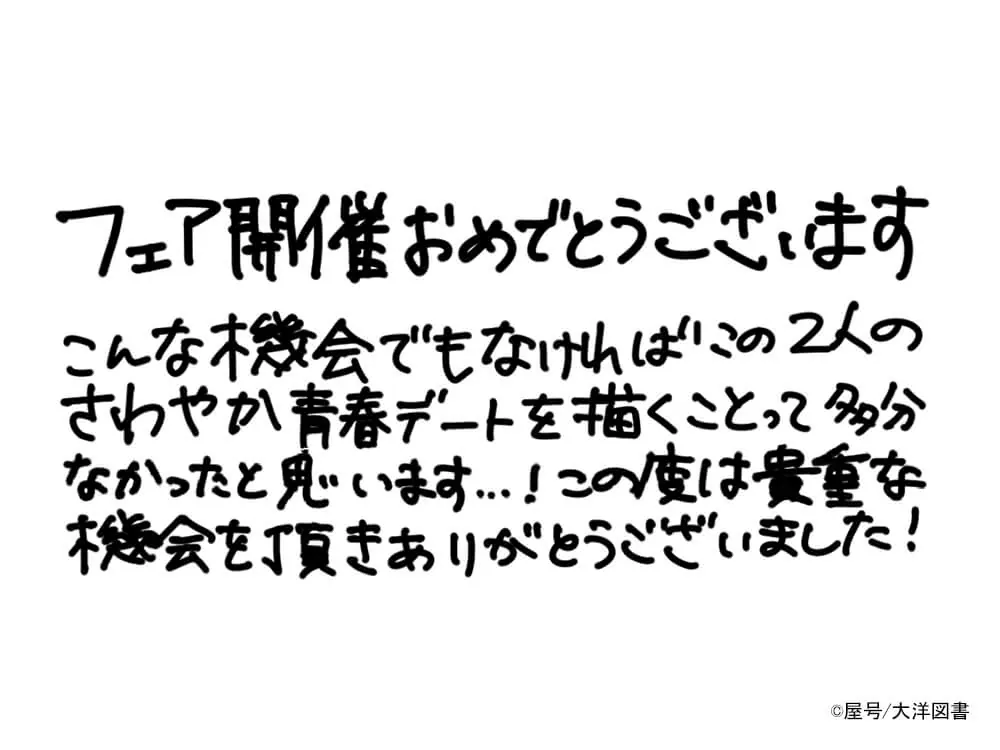 フェア開催おめでとうございます
こんな機会でもなければこの2人の
さわやか青春デートを描くことって多分
なかったと思います…!この度は貴重な
機会を頂きありがとうございました!
©屋号/大洋図書